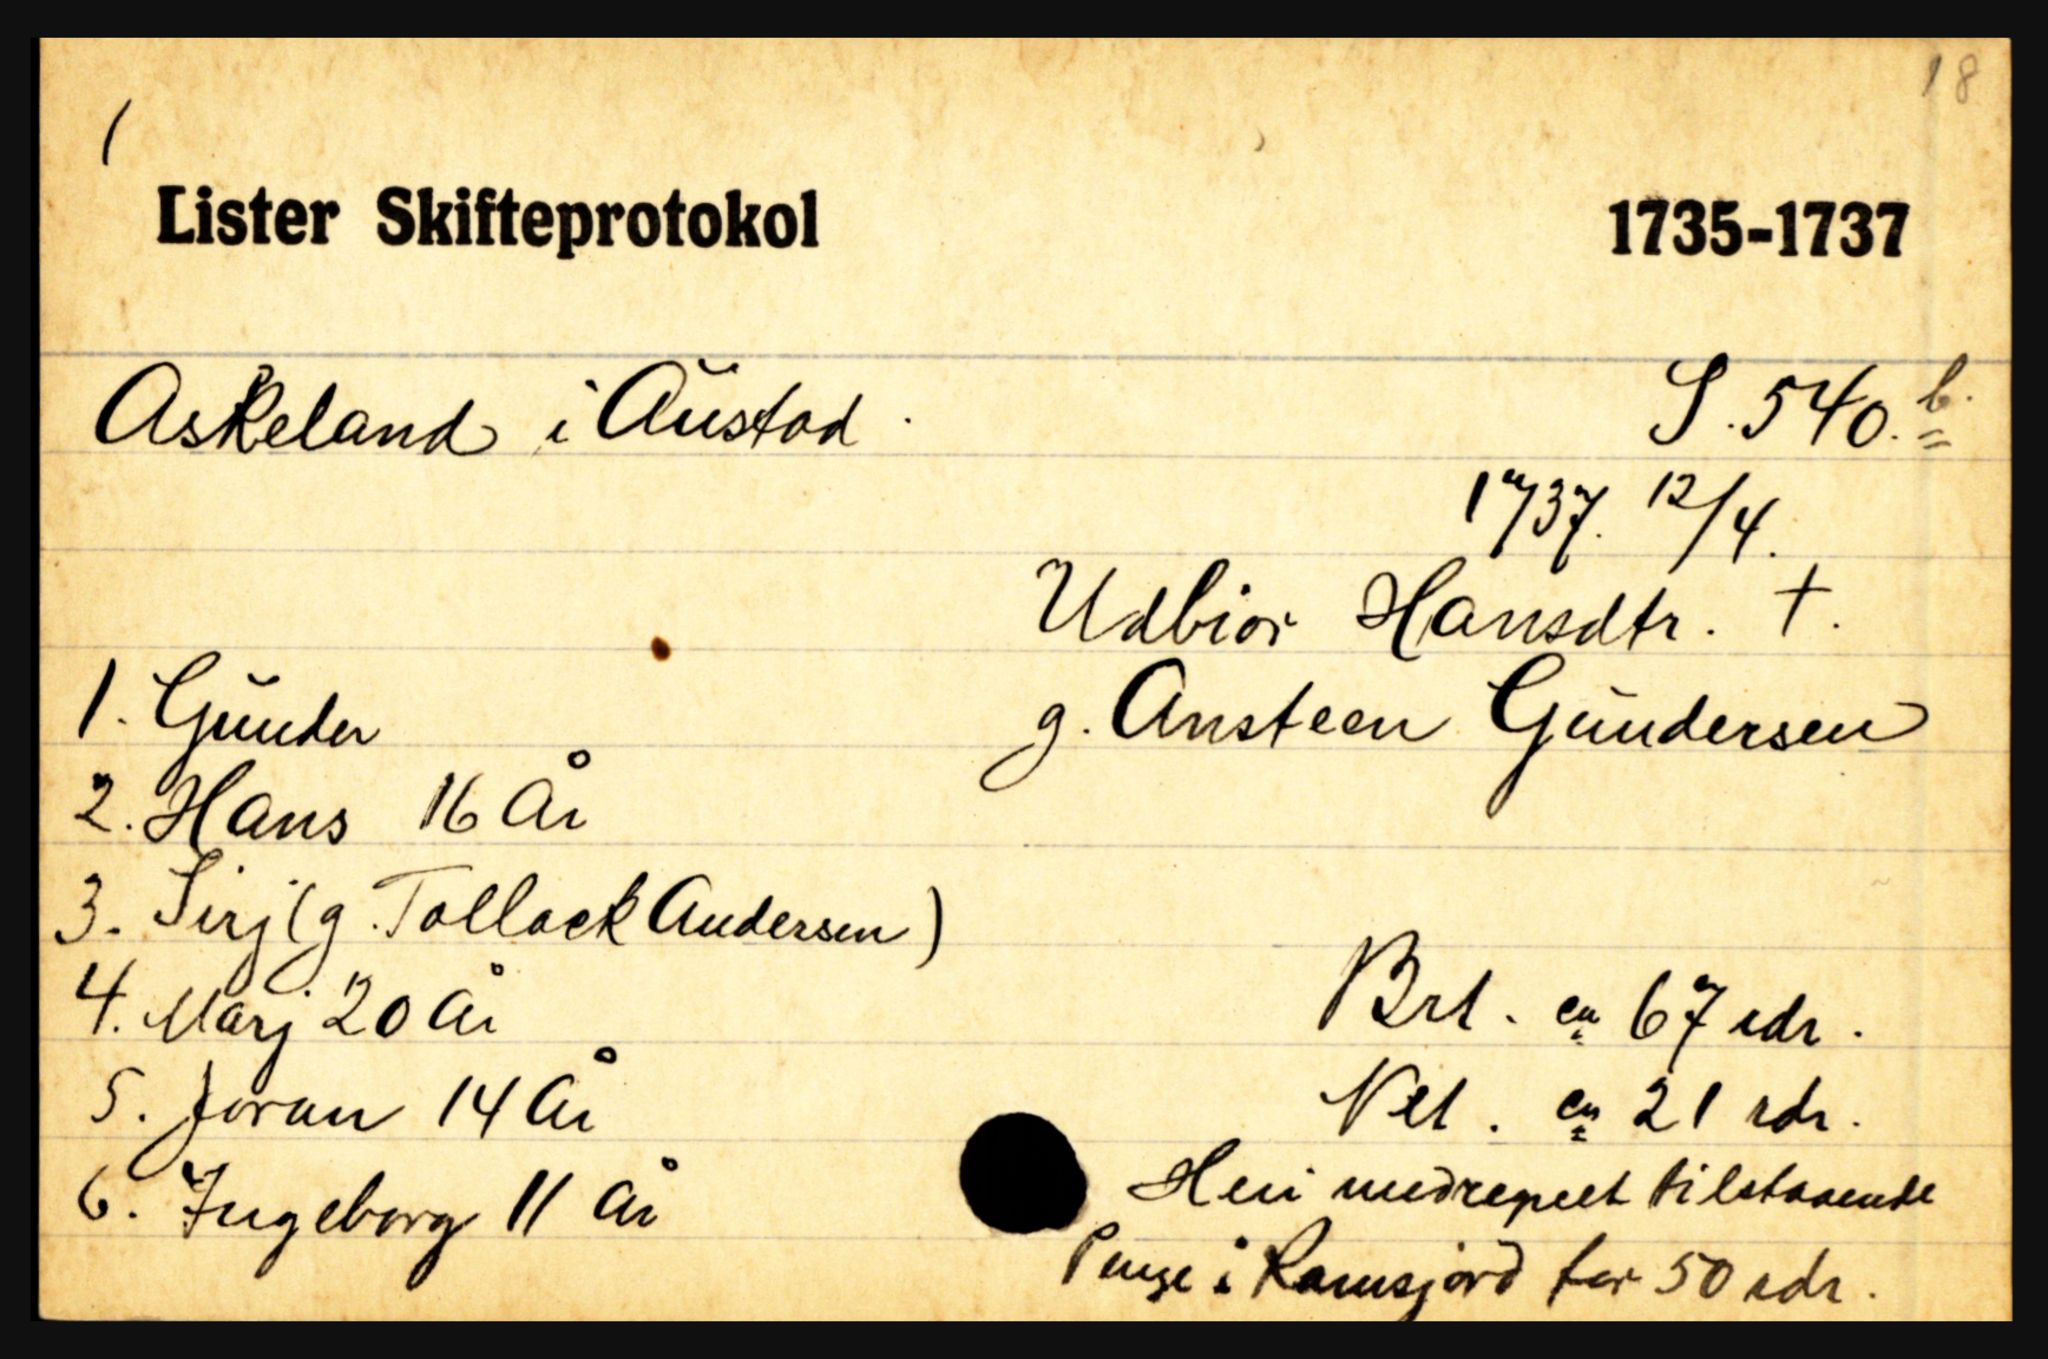 18
1
Lister Skifteprotokol 1735-1737
Askeland i Austad. S. 540. b.
1737. 12/4.
Udbior Hansdtr. †.
g. Ansteen Gundersen
1. Gunder
2. Hans 16 År
3. Sirj (g. Tollack Andersen)
4. Marj 20 År
5. Joran 14 År
6. Ingeborg 11 År
Brt. ca 67 rdr.
Net. ca 21 rdr.
Heri medregnet tilstaaende
Penge i Ramsjord for 50 rdr.